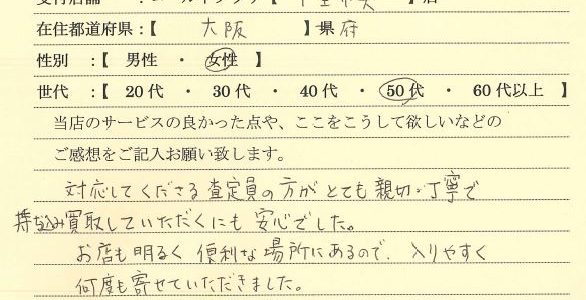 在住都道府県：【 大阪 】県府
性別 ：【 男性 ・ 女性 】
世代 ：【 20代 ・ 30代 ・ 40代 ・ 50代 ・ 60代以上 】
当店のサービスの良かった点や、ここをこうして欲しいなどの
ご感想をご記入お願い致します。
対応してくださる査定員の方がとても親切・丁寧で
持ち込み買取していただくにも安心でした。
お店も明るく便利な場所にあるので、入りやすく
何度も寄せていただきました。